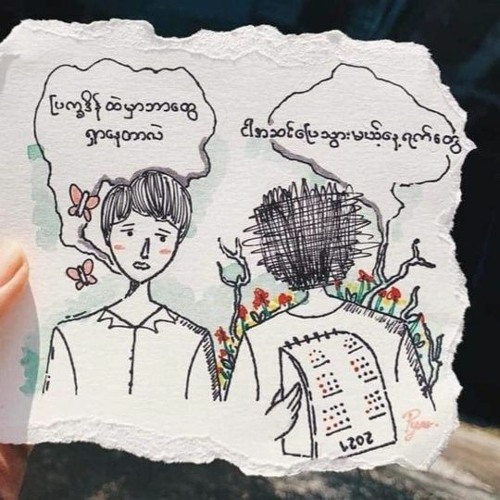 ပြက္ခဒိန် ထဲမှာဘာတွေ
ရှာနေတာလဲ
ငါအဆင်ပြေသွားမယ့်နေ့ရက်တွေ
2021